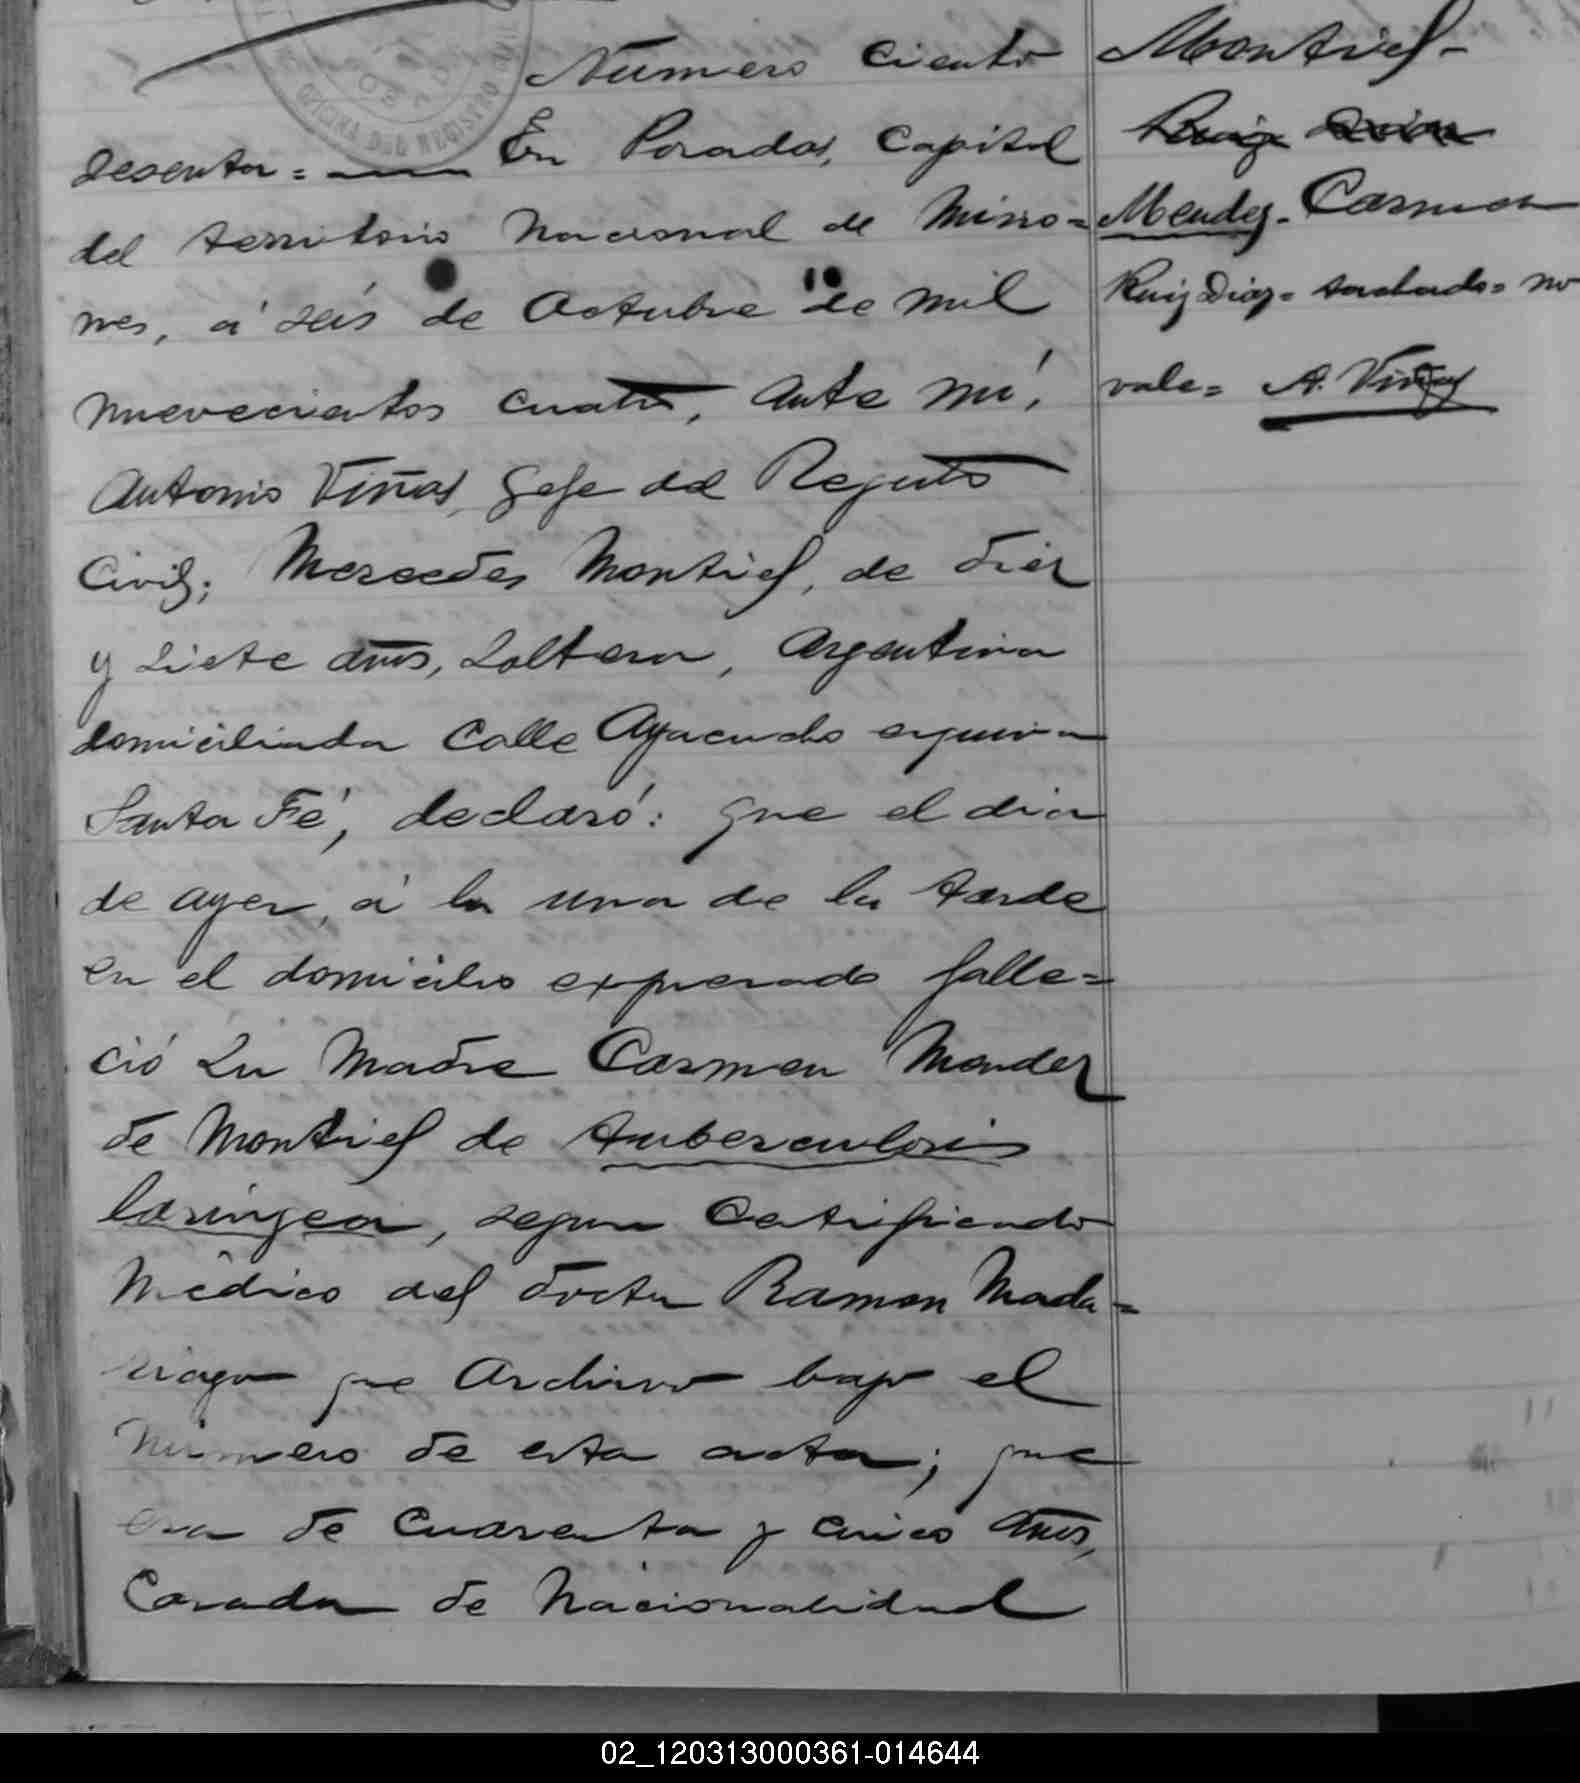 Número ciento
sesenta = En Posadas, Capital
del territorio Nacional de Misio=
nes, á seis de Octubre de mil
nuevecientos cuatro, ante mí,
Antonio Viñas, Gefe del Registro
Civil; Mercedes Montiel, de diez
y siete años, soltera, Argentina
domiciliada Calle Ayacucho esquina
Santa Fé, declaró: que el dia
de ayer, á la una de la tarde
en el domicilio expresado falle=
ció su Madre Carmen Mendez
de Montiel de tuberculosis
laringea, segun Certificado
Médico del doctor Ramon Mada=
riaga que Archivo bajo el
Número de esta acta; que
era de cuarenta y cinco años,
Casada de Nacionalidad
Montiel-
Ruiz Diaz
Mendez- Carmen
Ruiz Diaz= tachado= no
vale= A. Viñas
OFICINA DEL REGISTRO CIVIL
02_120313000361-014644